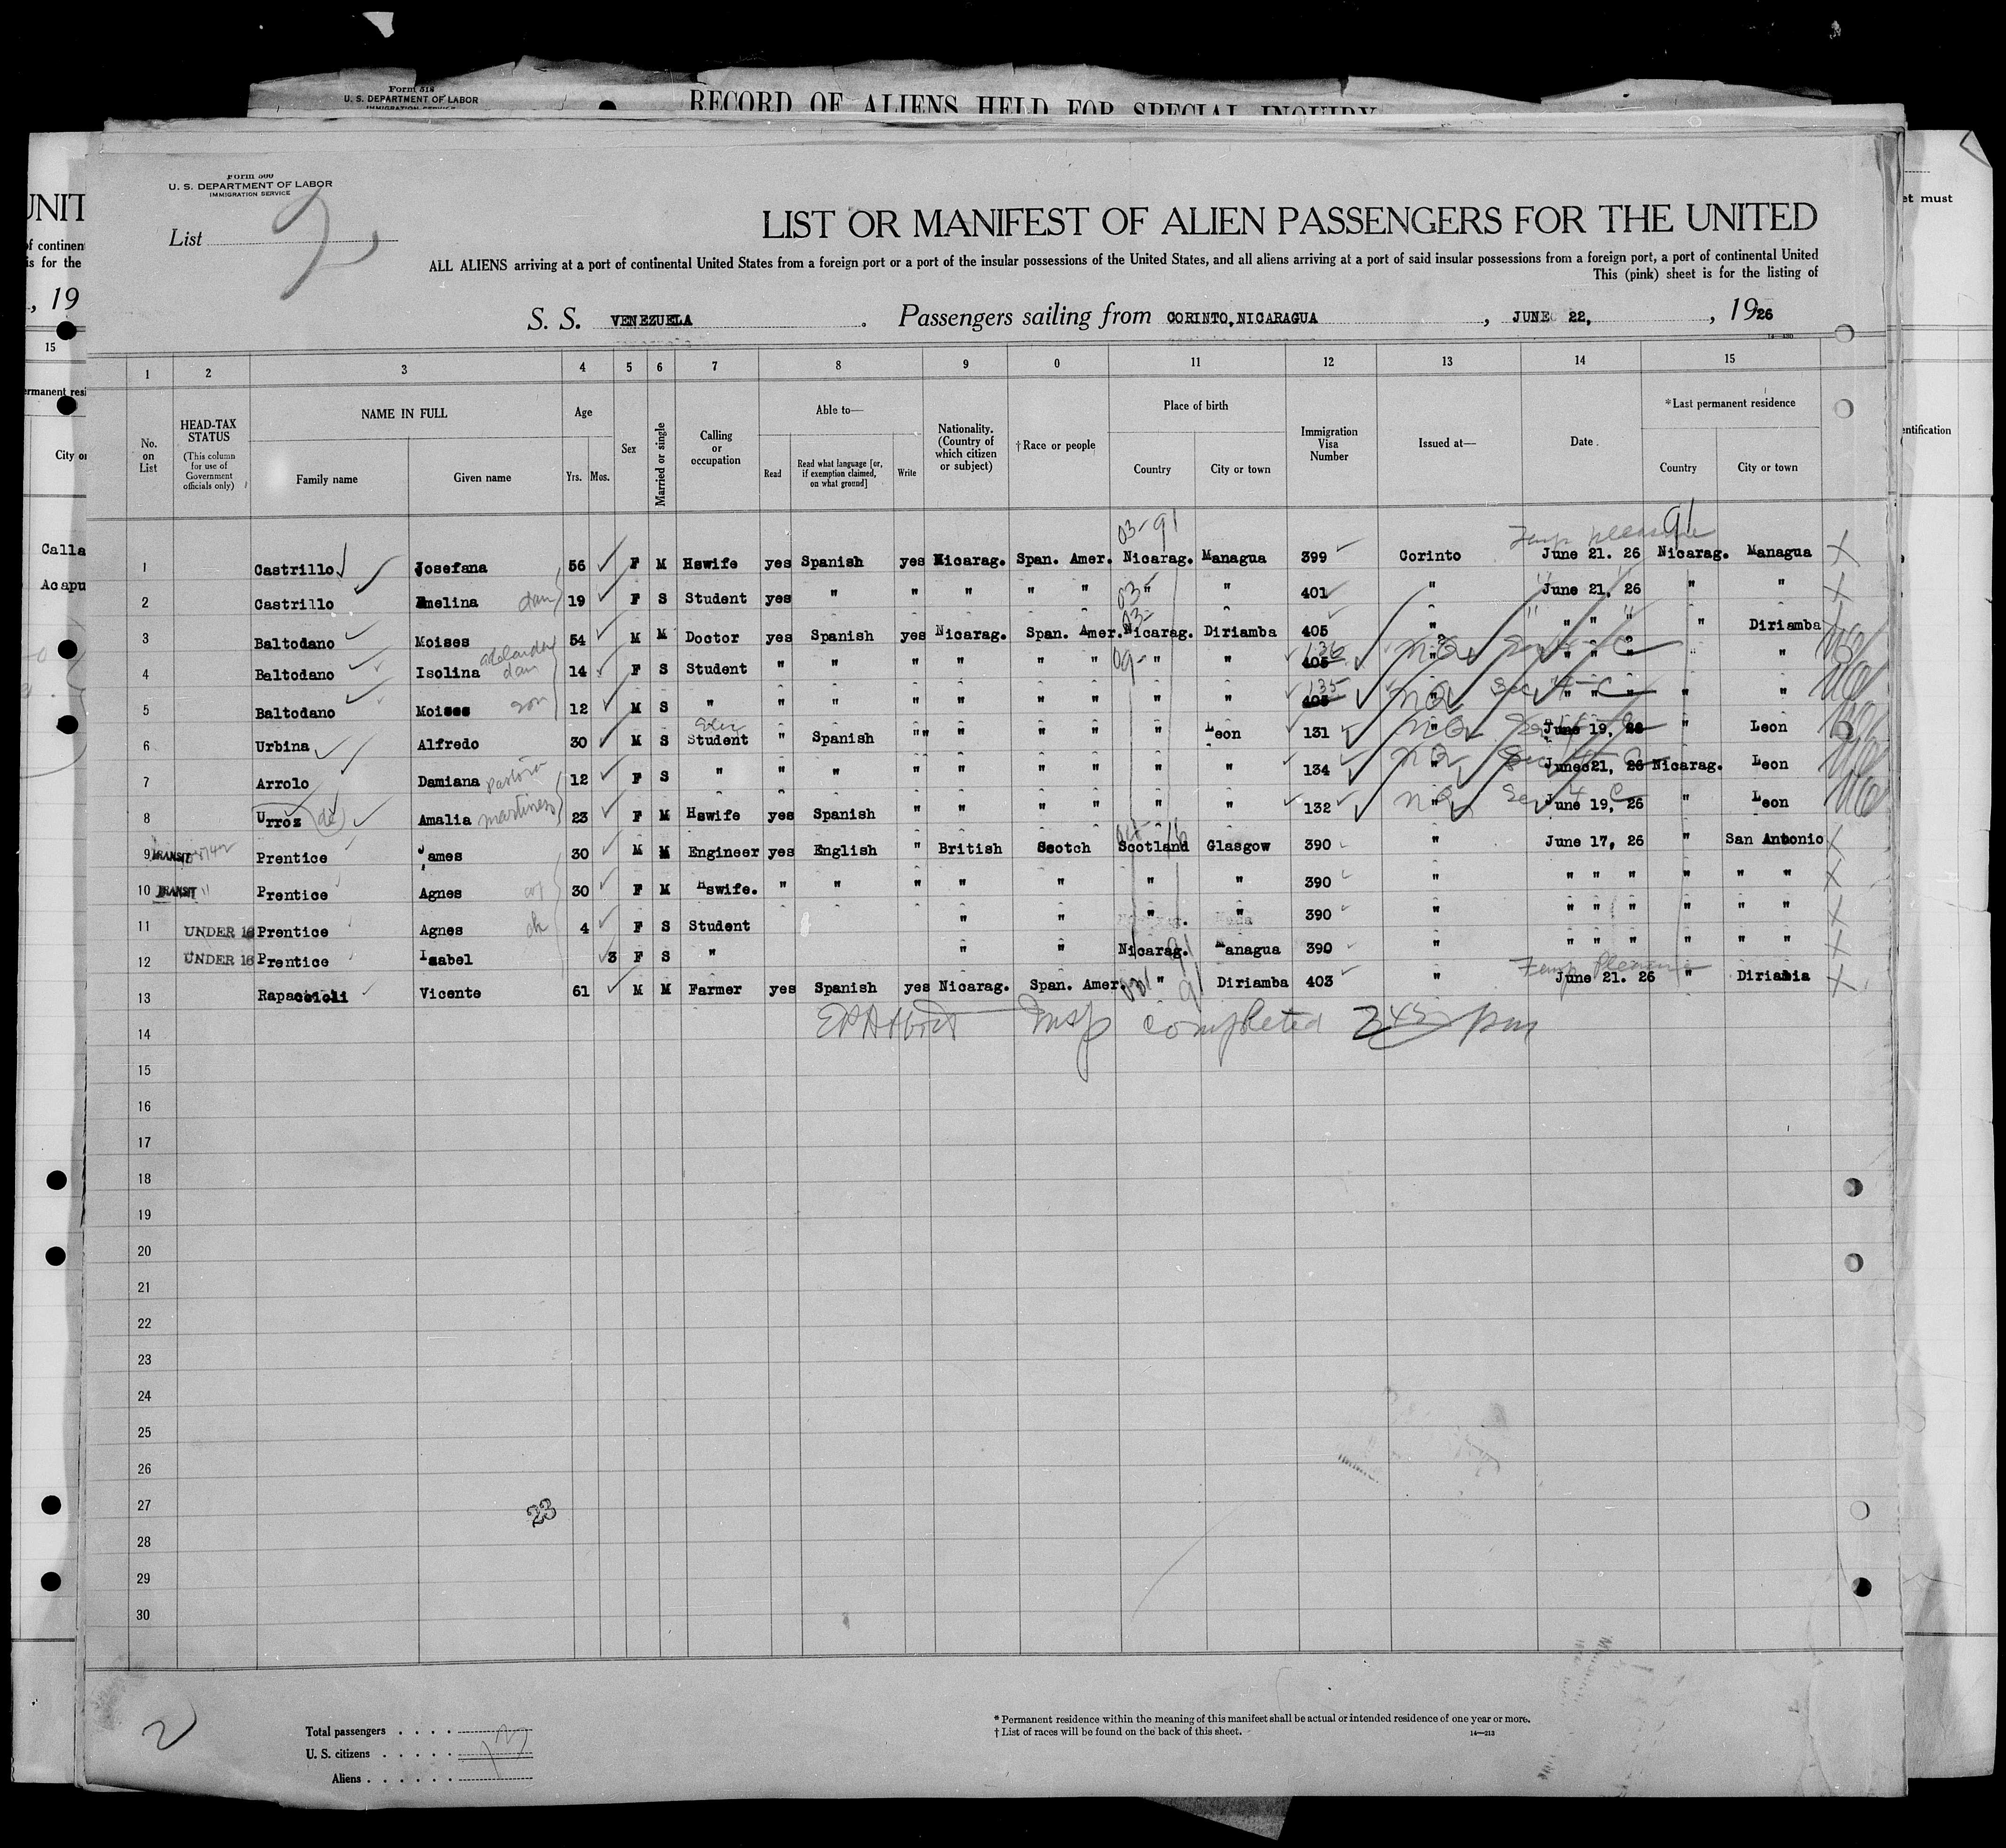 Form 518
U. S. DEPARTMENT OF LABOR
IMMIGRATION SERVICE
RECORD OF ALIENS HELD FOR SPECIAL INQUIRY
Form 500
U. S. DEPARTMENT OF LABOR
IMMIGRATION SERVICE
List 2
LIST OR MANIFEST OF ALIEN PASSENGERS FOR THE UNITED
ALL ALIENS arriving at a port of continental United States from a foreign port or a port of the insular possessions of the United States, and all aliens arriving at a port of said insular possessions from a foreign port, a port of continental United
This (pink) sheet is for the listing of
S. S. VENEZUELA. Passengers sailing from CORINTO, NICARAGUA, JUNE 22, 1926
1 2 3 4 5 6 7 8 9 0 11 12 13 14 15
No. on List
HEAD-TAX STATUS (This column for use of Government officials only)
NAME IN FULL Family name Given name
Age Yrs. Mos.
Sex
Married or single
Calling or occupation
Able to— Read Read what language [or, if exemption claimed, on what ground] Write
Nationality. (Country of which citizen or subject)
†Race or people
Place of birth Country City or town
Immigration Visa Number
Issued at—
Date
*Last permanent residence Country City or town
03-91 Temp pleasure 91
1 Castrillo Josefana 56 F M Hswife yes Spanish yes Nicarag. Span. Amer. Nicarag. Managua 399 Corinto June 21. 26 Nicarag. Managua
2 Castrillo Emelina dau 19 F S Student yes " " " " " 03 " " 401 " June 21, 26 " "
3 Baltodano Moises 54 M M Doctor yes Spanish yes Nicarag. Span. Amer. 03- Nicarag. Diriamba 405 " " " " " Diriamba
4 Baltodano Isolina dau 14 F S Student " " " " " " 09- " " 405 136 " NQ Sec 4-C " " " " "
5 Baltodano Moises son 12 M S " " " " " " " " " 405 135 " NQ Sec 4-C " " " " "
6 Urbina Alfredo 30 M S Student " Spanish "" " " " " Leon 131 " NQ Sec 4-C June 19, 26 " Leon
7 Arrolo Damiana Pastora 12 F S " " " " " " " " " 134 " NQ Sec 4-C June 21, 26 Nicarag. Leon
8 Urroz (de) Amalia Martinez 23 F M Hswife yes Spanish " " " " " " 132 " NQ Sec 4 C June 19, 26 " Leon
9 TRANSIT Prentice James 30 M M Engineer yes English " British Scotch Scotland Glasgow 390 " June 17, 26 " San Antonio
10 TRANSIT " Prentice Agnes 30 F M Hswife. " " " " " " " 390 " " " " " "
11 UNDER 16 Prentice Agnes ch 4 F S Student " " " " 390 " " " " " "
12 UNDER 16 Prentice Isabel 3 F S " " " Nicarag. Managua 390 " " " " " "
Temp Pleasure
13 Rapaccioli Vicente 61 M M Farmer yes Spanish yes Nicarag. Span. Amer. " 91 Diriamba 403 " June 21. 26 " Diriamia
14 Insp completed 2 45 pm
15
16
17
18
19
20
21
22
23
24
25
26
27
23
28
29
30
2
Total passengers
U. S. citizens
Aliens
13
* Permanent residence within the meaning of this manifest shall be actual or intended residence of one year or more.
† List of races will be found on the back of this sheet.
14—213